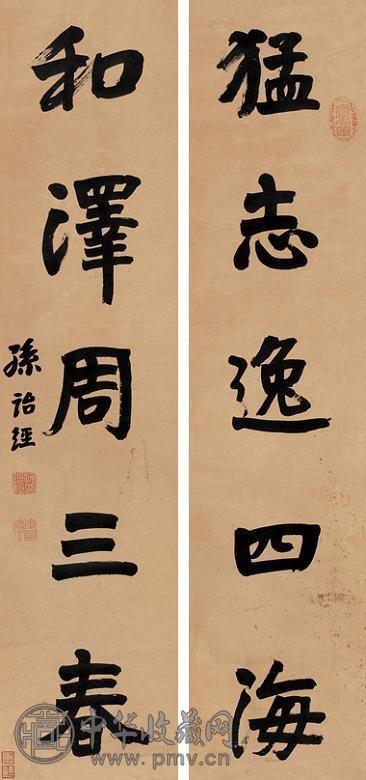 猛志逸四海
和澤周三春
孫詒經
中华收藏网
www.pmv.cn